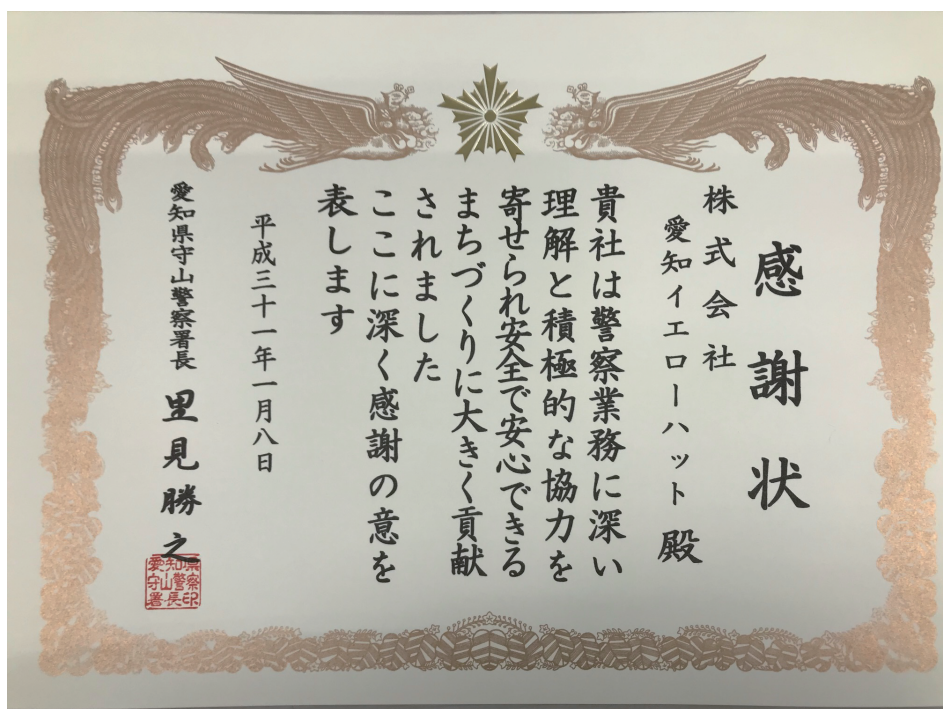 感謝状
株式会社
愛知イエローハット 殿
貴社は警察業務に深い
理解と積極的な協力を
寄せられ安全で安心できる
まちづくりに大きく貢献
されました
ここに深く感謝の意を
表します
平成三十一年一月八日
愛知県守山警察署長 里見勝之
愛知県
守山警察
署長印